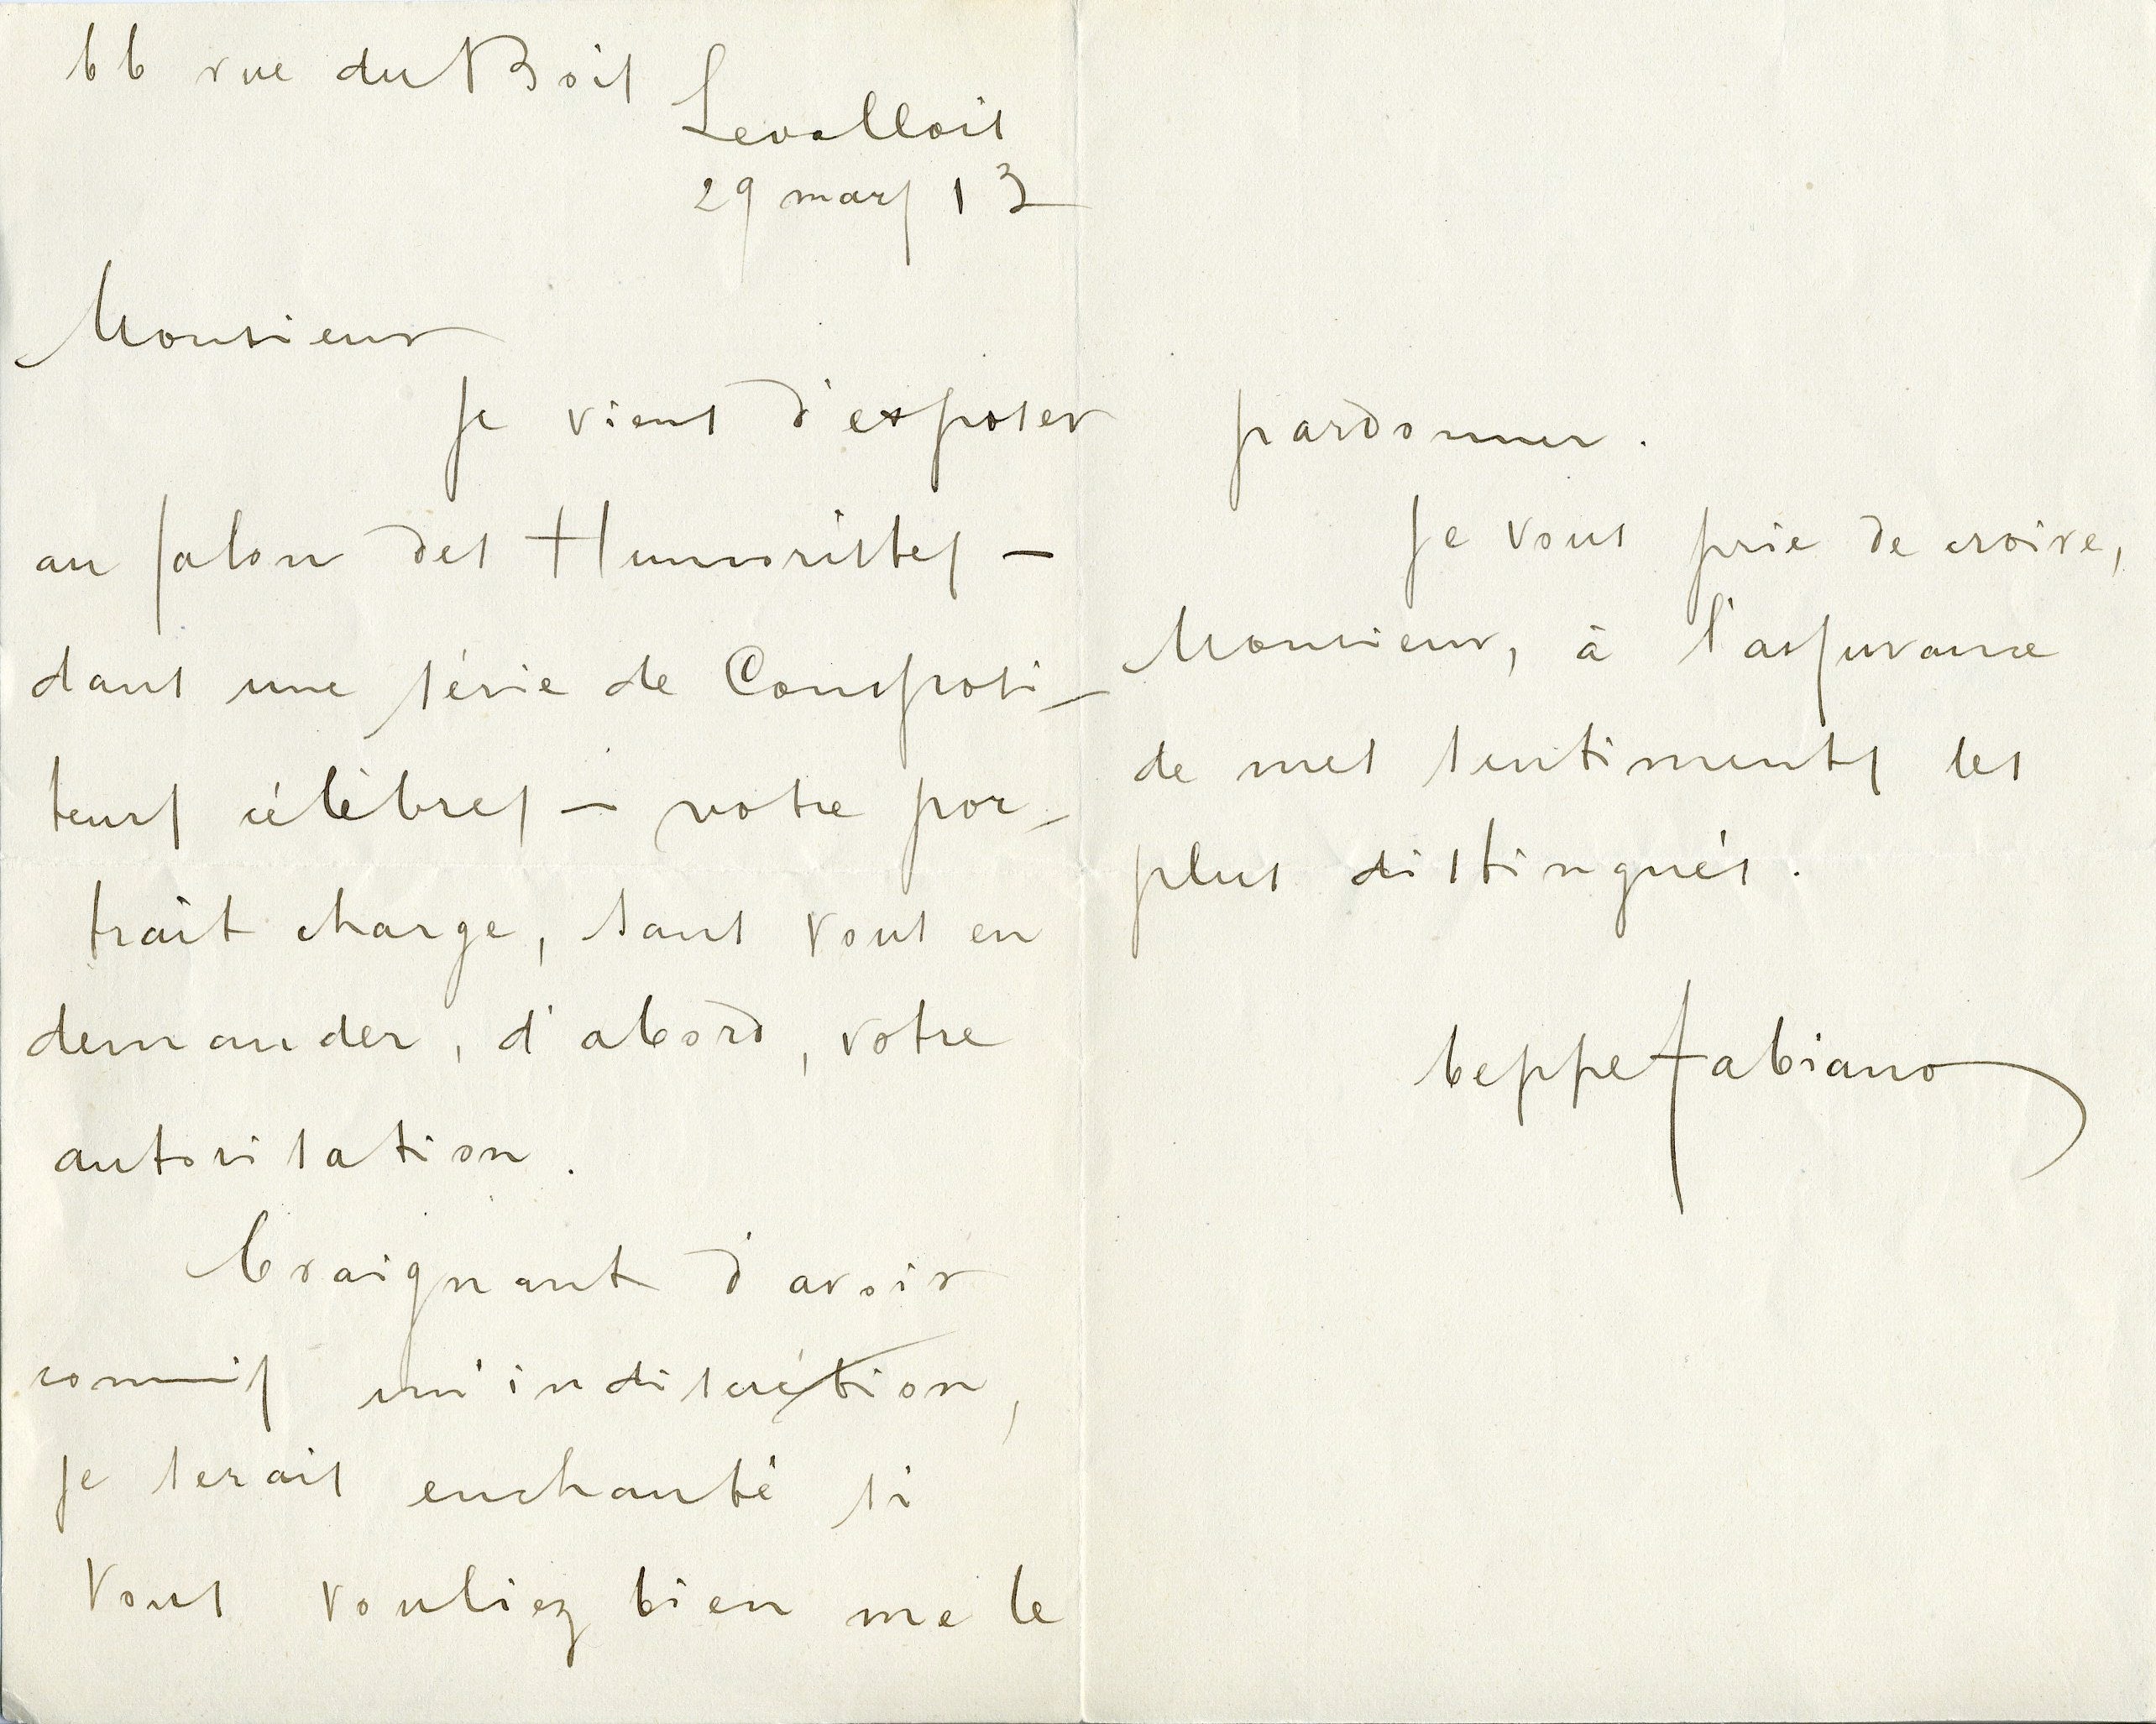 66 rue du Bois
Levallois
29 mars 13
Monsieur
Je viens d'exposer
au Salon des Humoristes —
dans une série de Composi-
teurs célèbres — votre por-
trait charge, sans vous en
demander, d'abord, votre
autorisation.
Craignant d'avoir
commis un' indiscrétion,
je serais enchanté si
vous vouliez bien me le
pardonner.
Je vous prie de croire,
Monsieur, à l'assurance
de mes sentiments les
plus distingués.
beppe fabiano